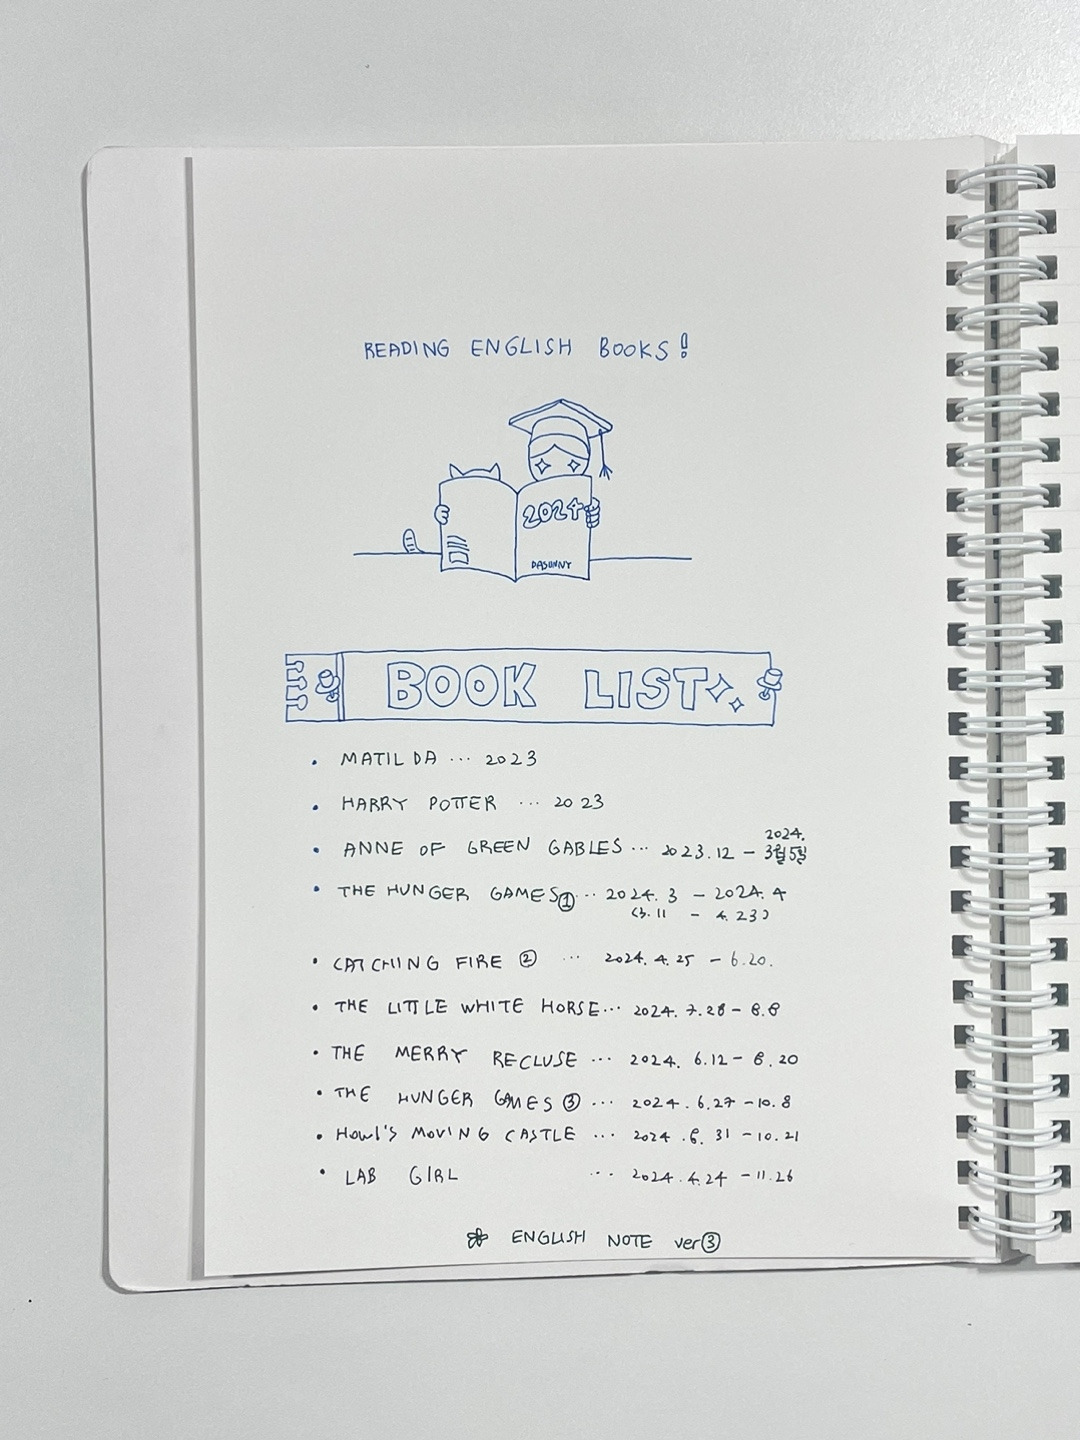 READING ENGLISH BOOKS!
2024
DASUNNY
BOOK LIST
• MATILDA ... 2023
• HARRY POTTER ... 2023
• ANNE OF GREEN GABLES ... 2023.12 - 2024. 3월5일
• THE HUNGER GAMES① ... 2024. 3 - 2024. 4
(3.11 - 4.23)
• CATCHING FIRE ② ... 2024. 4. 25 - 6.20.
• THE LITTLE WHITE HORSE... 2024. 7.28 - 8.8
• THE MERRY RECLUSE ... 2024. 6.12 - 8.20
• THE HUNGER GAMES ③ ... 2024. 6.27 - 10.8
• Howl's MOVING CASTLE ... 2024 .8. 31 - 10.21
• LAB GIRL ... 2024.4.24 - 11.26
ENGLISH NOTE ver③